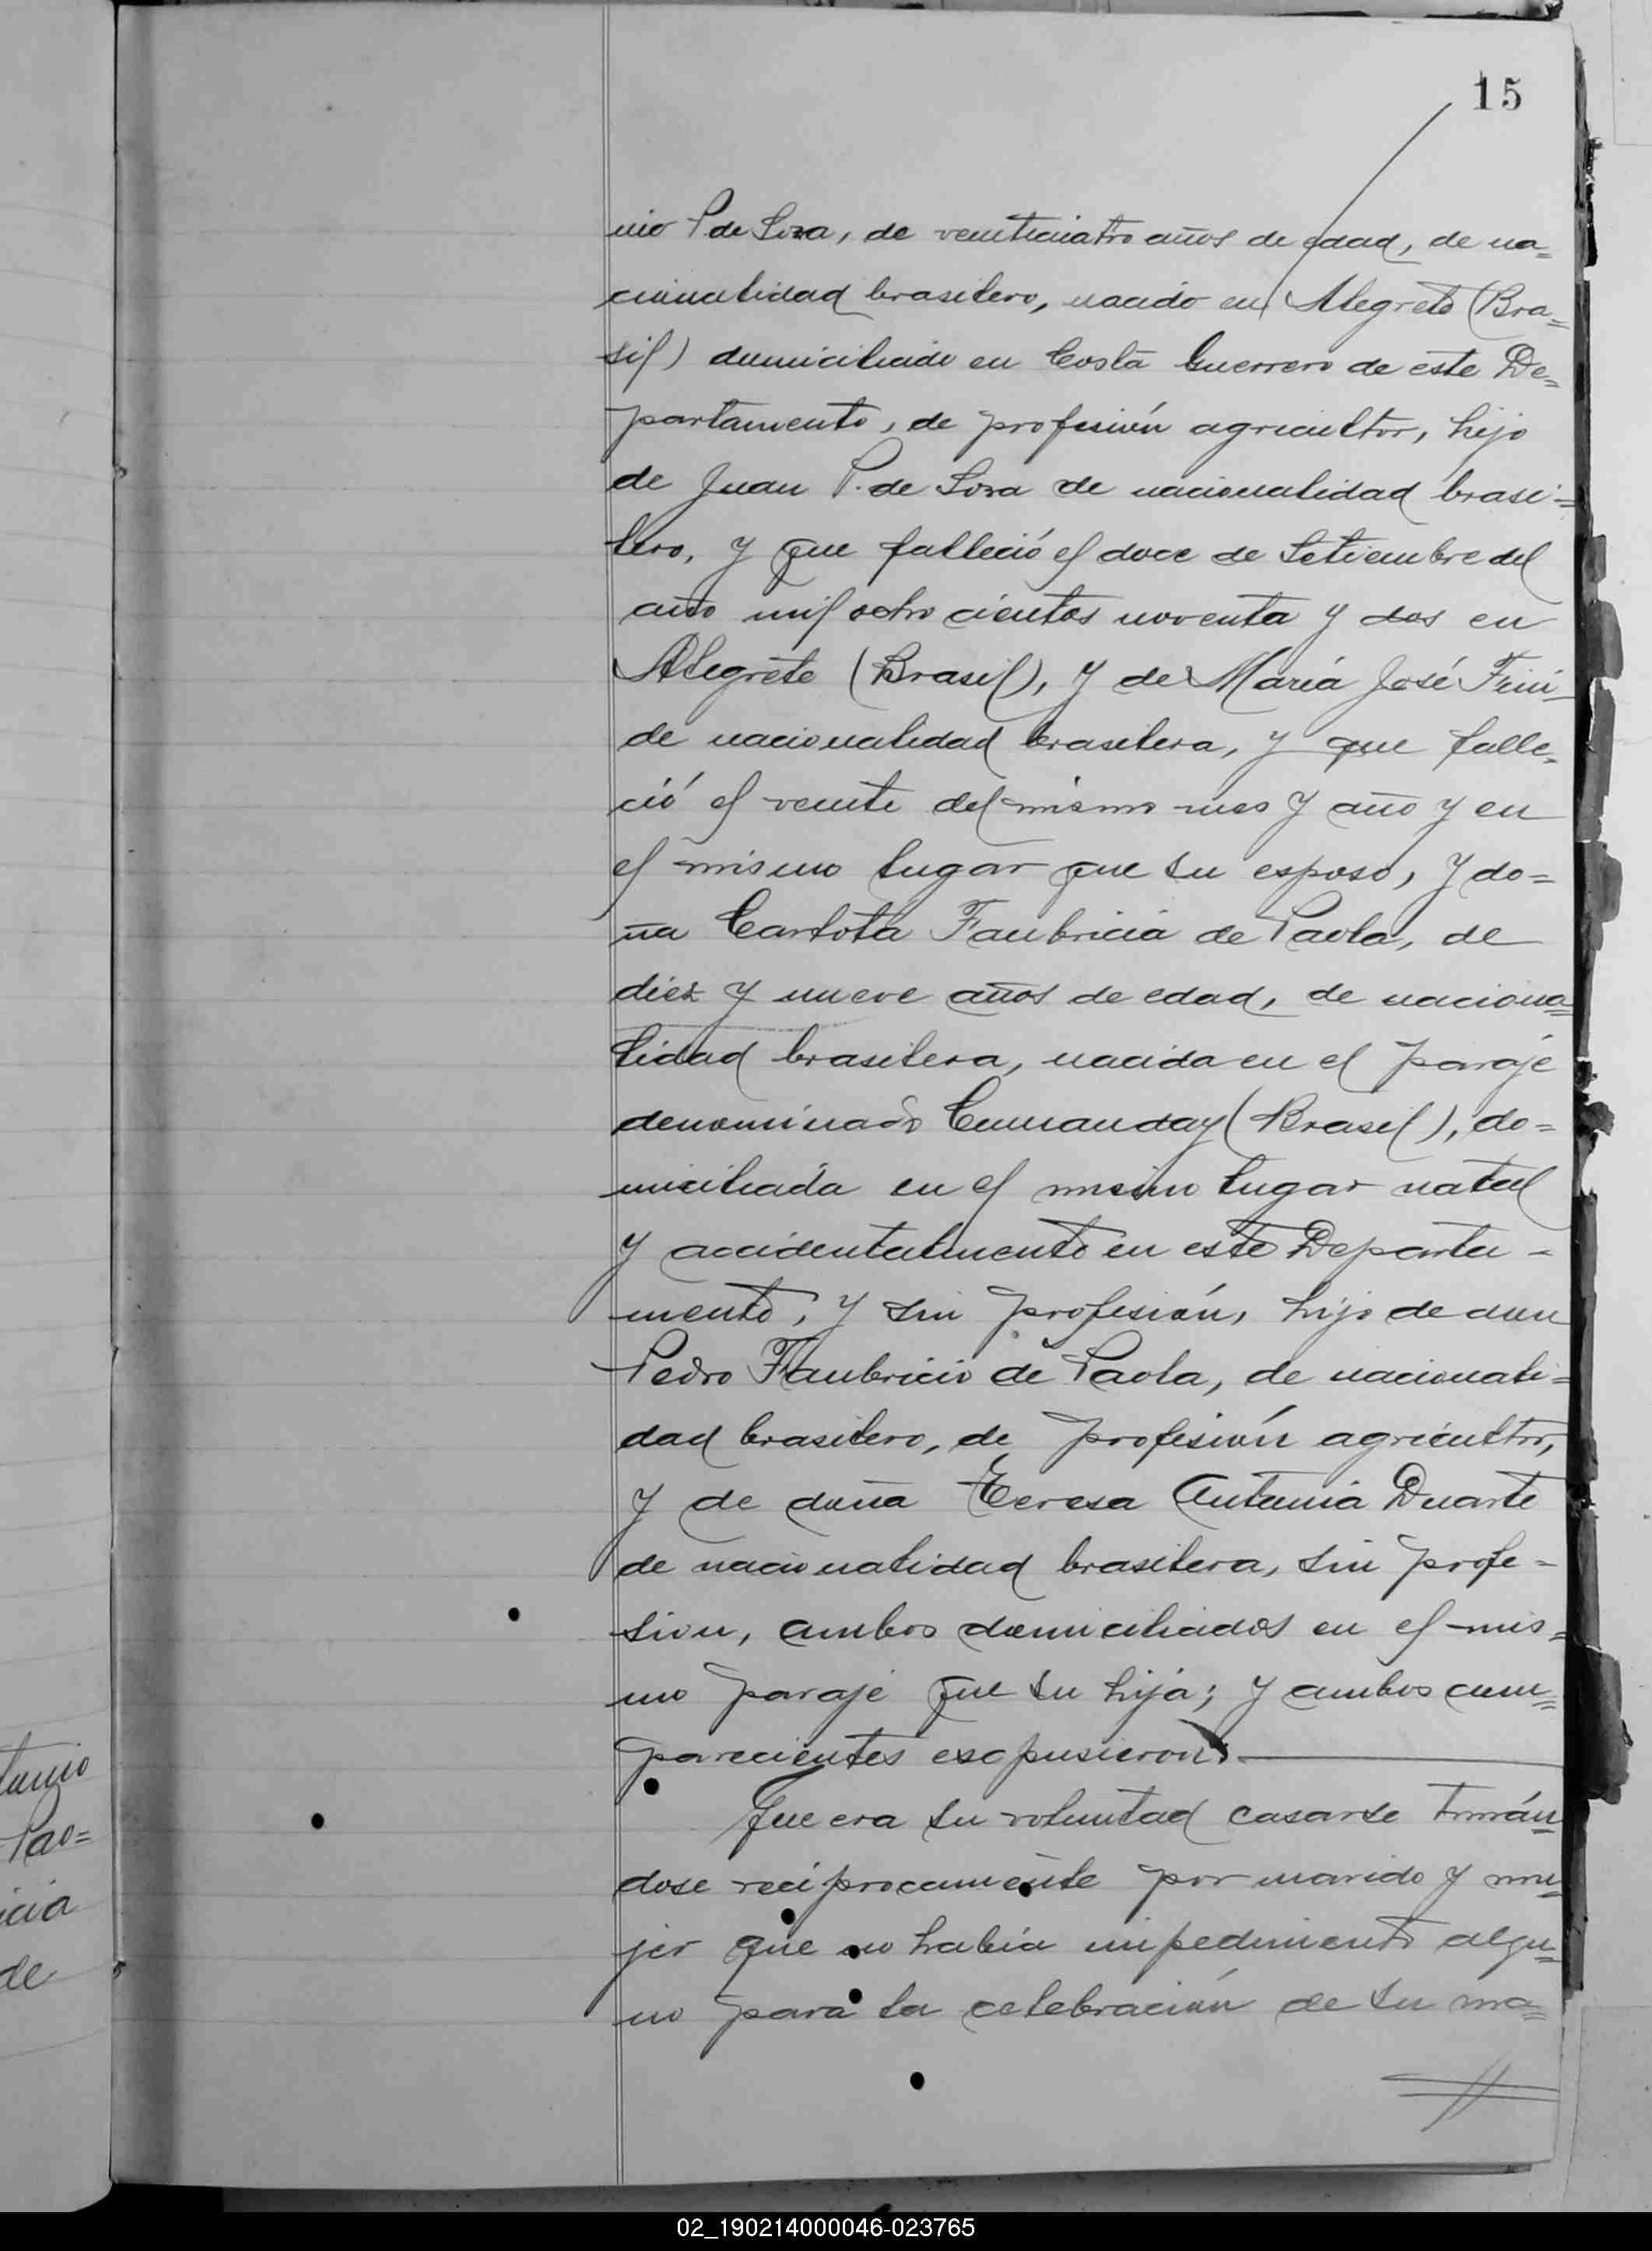 15
nio P de Soza, de venticuatro años de edad, de na=
cionalidad brasilero, nacido en Alegrete (Bra=
sil) domiciliado en Costa Guerrero de este De=
partamento, de profesión agricultor, hijo
de Juan P. de Soza de nacionalidad brasi=
lero, y que falleció el doce de Setiembre del
año mil ochocientos noventa y dos en
Alegrete (Brasil), y de María José
de nacionalidad brasilera, y que falle=
ció el veinte del mismo mes y año y en
el mismo lugar que su esposo, y do=
ña Carlota Faubricia de Paola, de
diez y nueve años de edad, de naciona=
lidad brasilera, nacida en el paraje
denominado Cumanday (Brasil), do=
miciliada en el mismo lugar natal
y accidentalmente en este Departa-
mento, y sin profesión, hijo de don
Pedro Faubricio de Paola, de nacionali=
dad brasilero, de profesión agricultor,
y de doña Teresa Antonia Duarte
de nacionalidad brasilera, sin profe=
sion, ambos domiciliados en el mis=
mo paraje que su hija; y ambos com=
parecientes expusieron:
Que era su voluntad casarse tomán=
dose reciprocamente por marido y mu=
jer que no había impedimento algu=
no para la celebración de su ma=
tonio
Pao=
icia
de
02_190214000046-023765